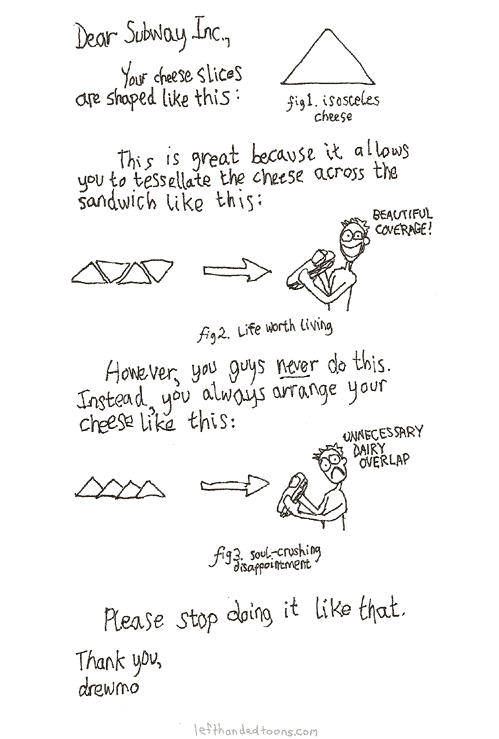 Dear Subway Inc.,
Your cheese slices
are shaped like this:
fig1. isosceles
cheese
This is great because it allows
you to tessellate the cheese across the
sandwich like this:
BEAUTIFUL
COVERAGE!
fig2. Life worth living
However, you guys never do this.
Instead, you always arrange your
cheese like this:
UNNECESSARY
DAIRY
OVERLAP
fig3. soul-crushing
disappointment
Please stop doing it like that.
Thank you,
drewmo
lefthandedtoons.com